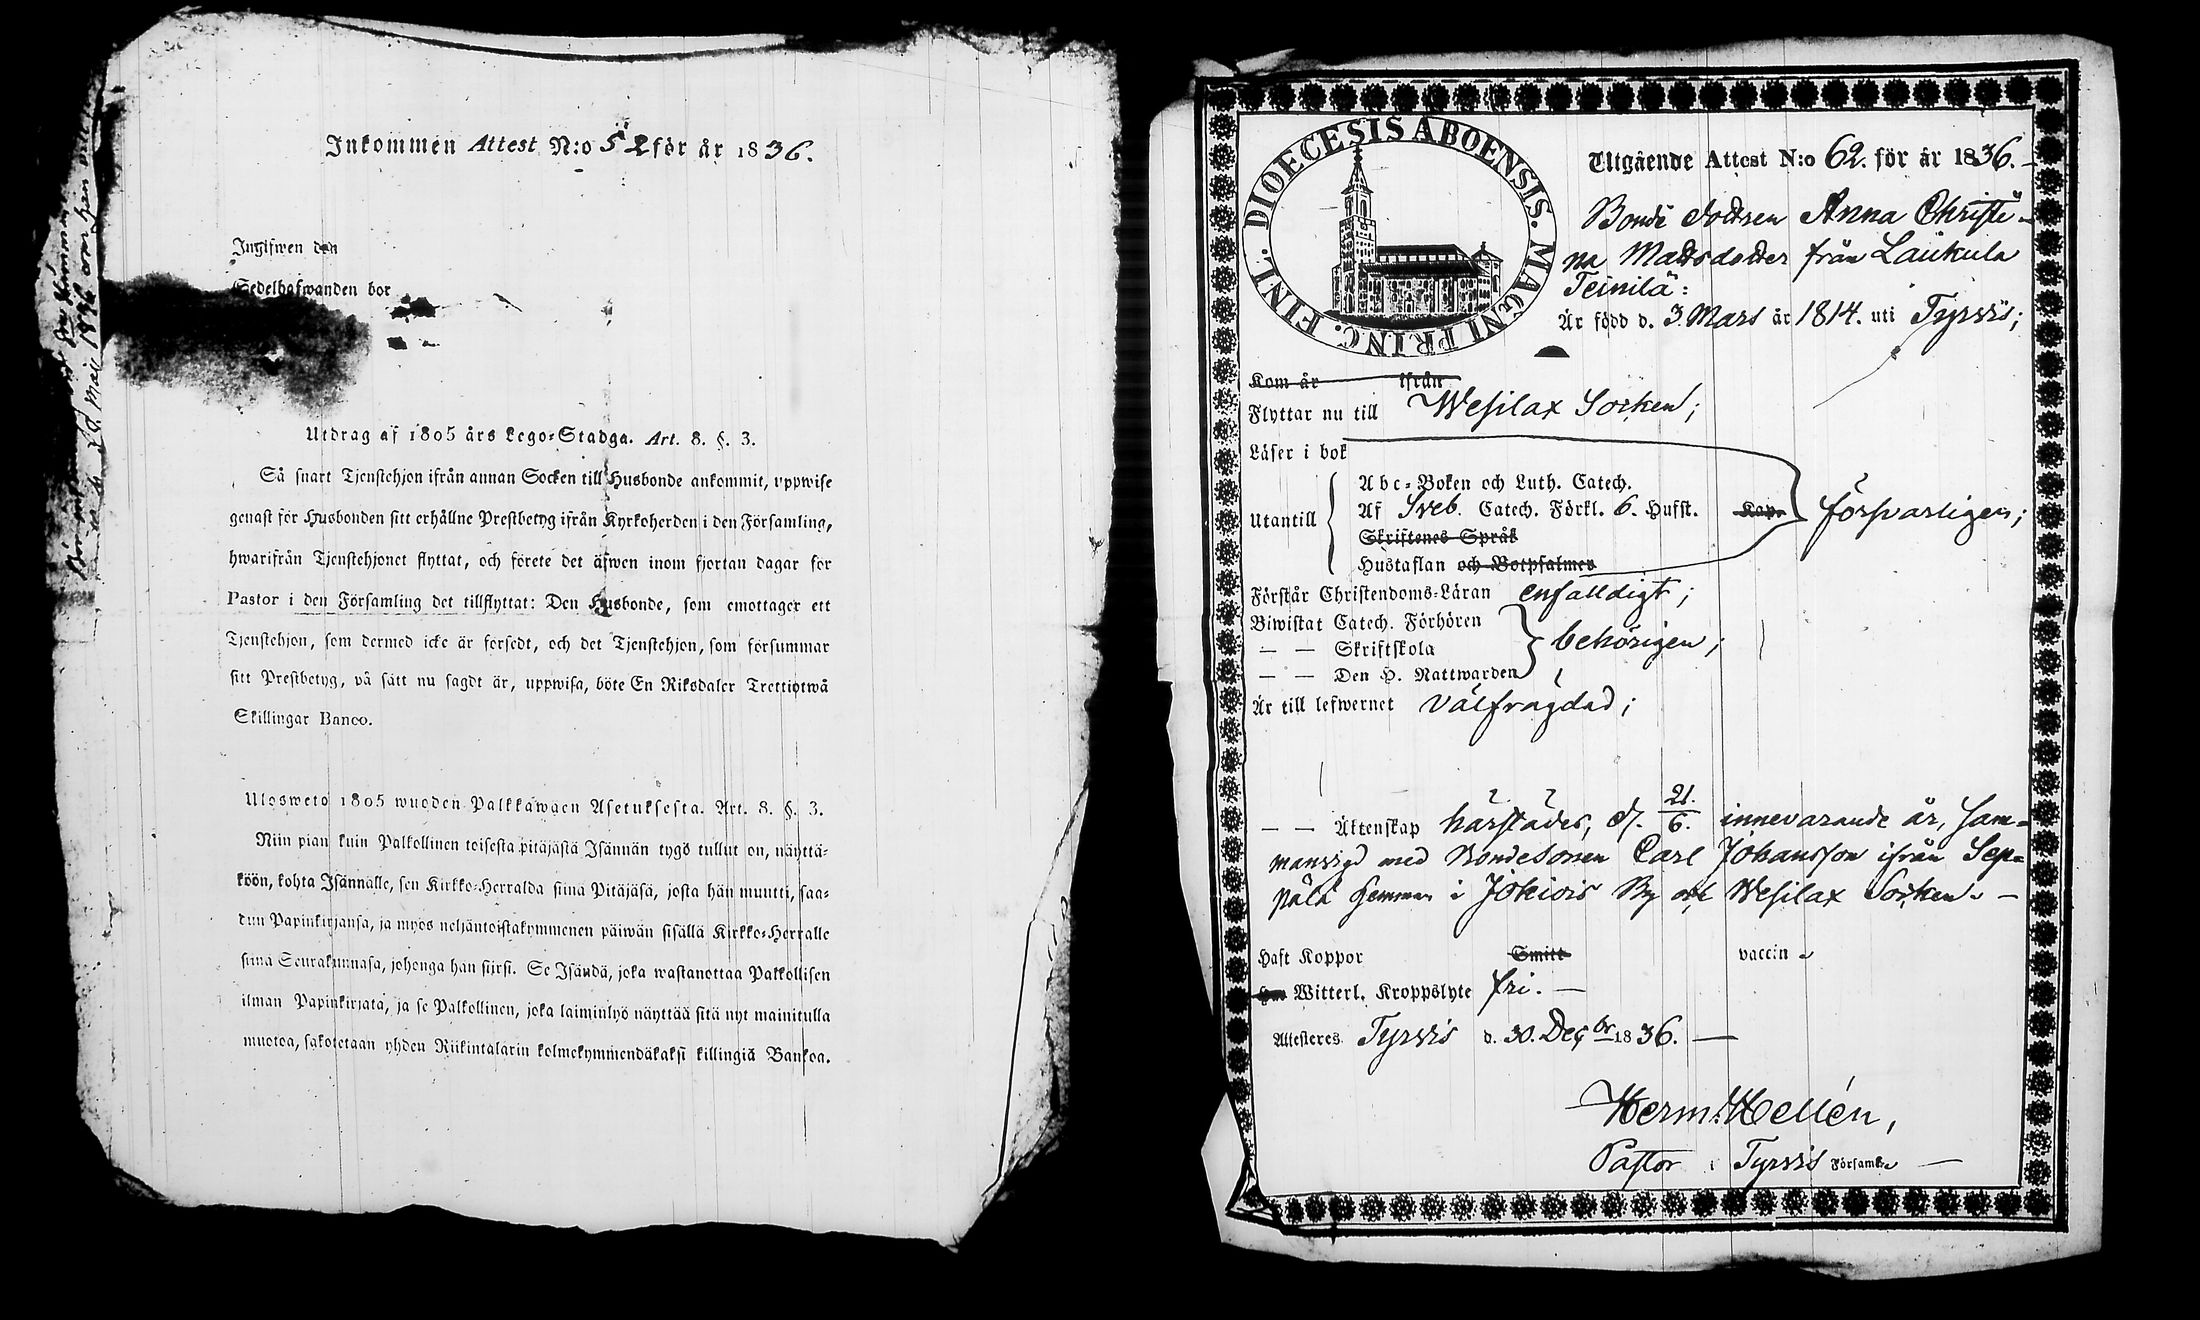 Inkommen Attest N:o 52 för år 1836.
Ingifwen den
Sedelhafwanden bor
Utdrag af 1805 års Lego-Stadga. Art. 8. §. 3.
Så snart Tjenstehjon ifrån annan Socken till Husbonde ankommit, uppwise
genast för Husbonden sitt erhållne Prestbetyg ifrån Kyrkoherden i den Församling,
hwarifrån Tjenstehjonet flyttat, och förete det äfwen inom fjortan dagar för
Pastor i den Församling det tillflyttat: Den Husbonde, som emottager ett
Tjenstehjon, som dermed icke är försedt, och det Tjenstehjon, som försummar
sitt Prestbetyg, på sätt nu sagdt är, uppwisa, böte En Riksdaler Trettiotwå
Skillingar Banco.
Ulosweto 1805 wuoden Palkkawäen Asetuksesta. Art. 8. §. 3.
Niin pian kuin Palkollinen toisesta pitäjästä Isännän tygö tullut on, näyttä-
köön, kohta Isännälle, sen Kirkko-Herralda siinä Pitäjäsä, josta hän muutti, saa-
dun Papinkirjansa, ja myös neljäntoistakymmenen päiwän sisällä Kirkko-Herralle
siinä Seurakunnasa, johonga hän siirsi. Se Isändä, joka wastanottaa Palkollisen
ilman Papinkirjata, ja se Palkollinen, joka laiminlyö näyttää sitä nyt mainitulla
muotoa, sakotetaan yhden Riikintalarin kolmekymmendäkaksi killingiä Bankoa.
DIOECESIS ABOENSIS. MAGNI PRINC. FINL.
Utgående Attest N:o 62. för år 1836.
Bonde dottren Anna Christi-
na Mattsdotter från Laukula
Teinilä:
Är född d. 3. Mars år 1814. uti Tyrvis;
Kom år ifrån
Flyttar nu till Wesilax Socken;
Läser i bok
Abc-Boken och Luth. Catech.
Utantill Af Sveb. Catech. Förkl. 6. Hufst. Kap. försvarligen;
Skriftenes Språk
Hustaflan och Botpsalmer
Förstår Christendoms-Läran enfalldigt;
Biwistat Catech. Förhören
— — Skriftskola behörigen;
— — Den H. Nattwarden
Är till lefwernet välfrägdad;
— — Äktenskap härstädes, d. 21/6. innevarande år, sam-
manvigd med Bondesonen Carl Johansson ifrån Sep-
pälä hemman i Jokiois By och Wesilax Socken. —
Haft Koppor Smitt vaccin
Witterl. Kroppslyte fri. —
Attesteres Tyrvis d. 30. Decbr 1836. —
Herm. Hellén,
Pastor i Tyrvis Församl. —